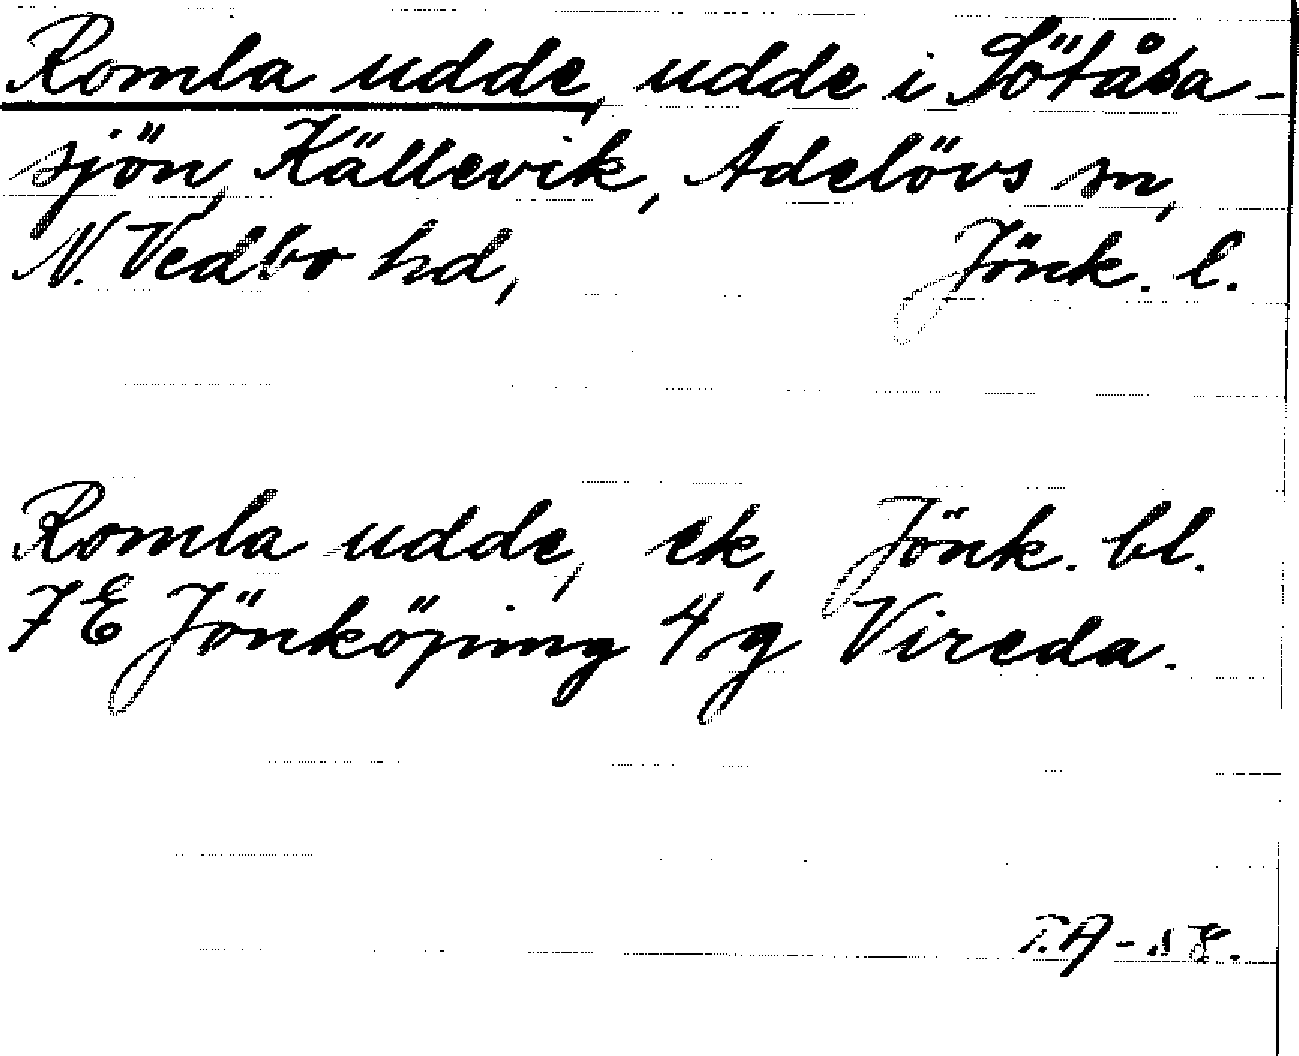 Romla udde, udde i Sötåsa-
sjön, Källevik, Adelövs sn,
N. Vedbo hd, Jönk. l.
Romla udde, ek, Jönk. bl.
7 E Jönköping 4 g Vireda.